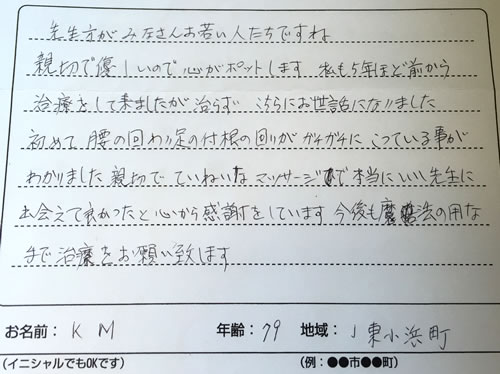 先生方がみなさんお若い人たちですね
親切で優しいので心がポットします 私も5年ほど前から
治療をして来ましたが治らず こちらにお世話になりました
初めて腰の回わり足の付根の回りがガチガチにこっている事が
わかりました 親切でていねいなマッサージで本当にいい先生に
出会えて良かったと心から感謝をしています 今後も魔法の用な
手で治療をお願い致します
お名前: K M 年齢: 79 地域: 東小浜町
(イニシャルでもOKです) (例:●●市●●町)